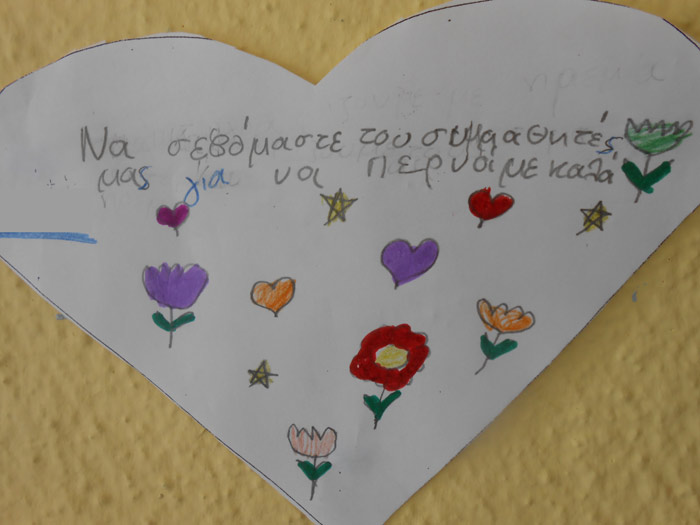 Να σεβόμαστε του συμμαθητές
μας για να περνάμε καλά